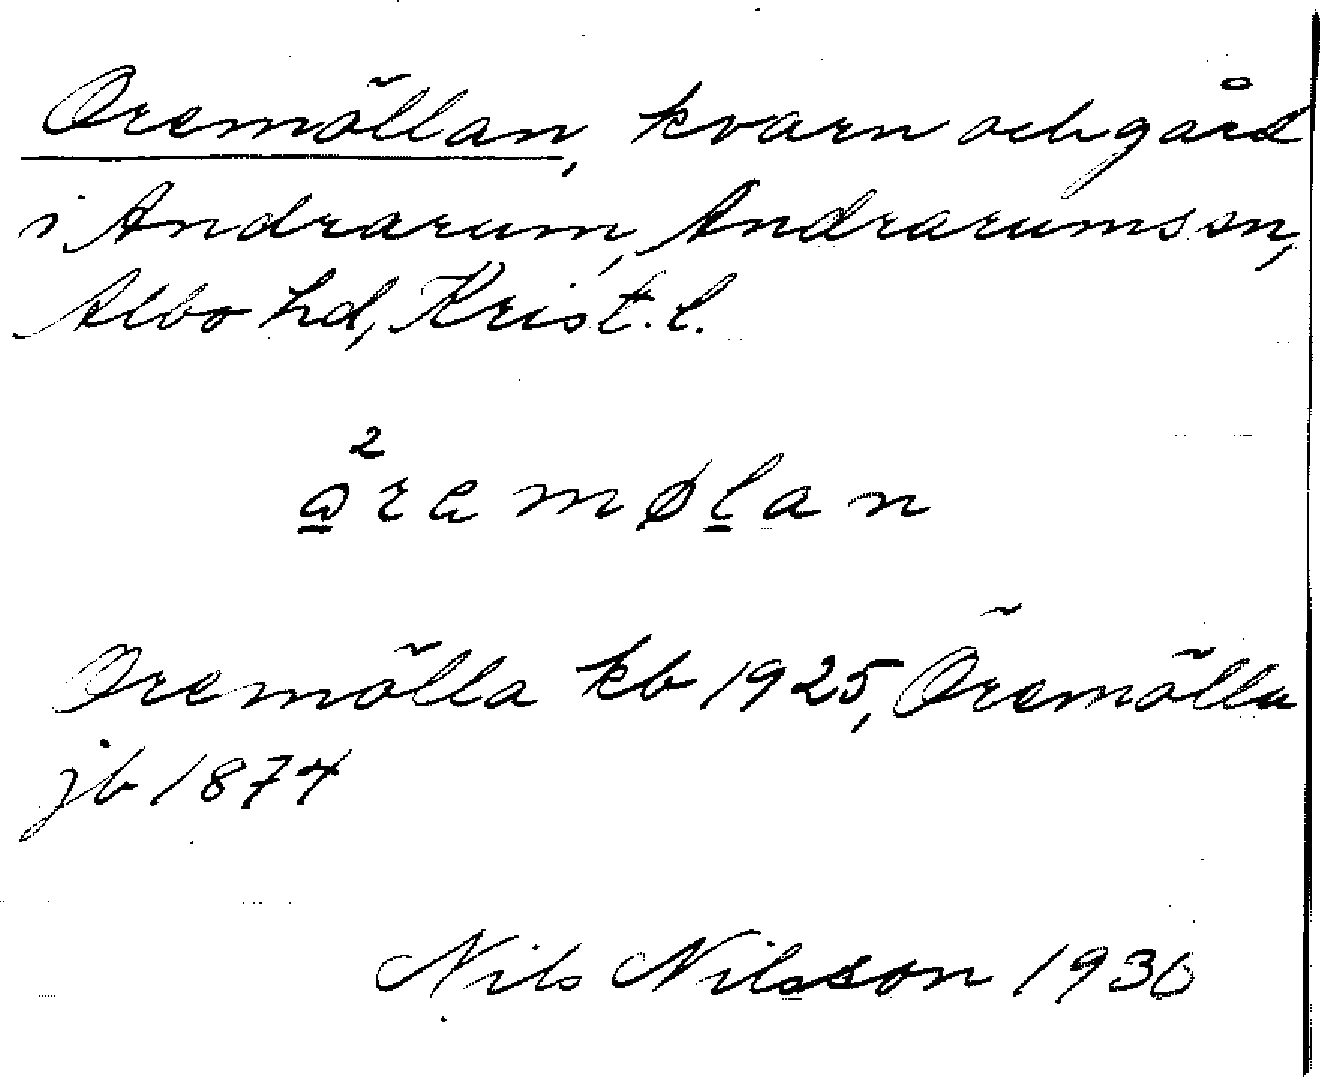 Oremöllan, kvarn och gård
i Andrarum, Andrarums sn,
Albo hd, Krist. l.
Oremölla kb 1925, Öremölla
jb 1874
Nils Nilsson 1930